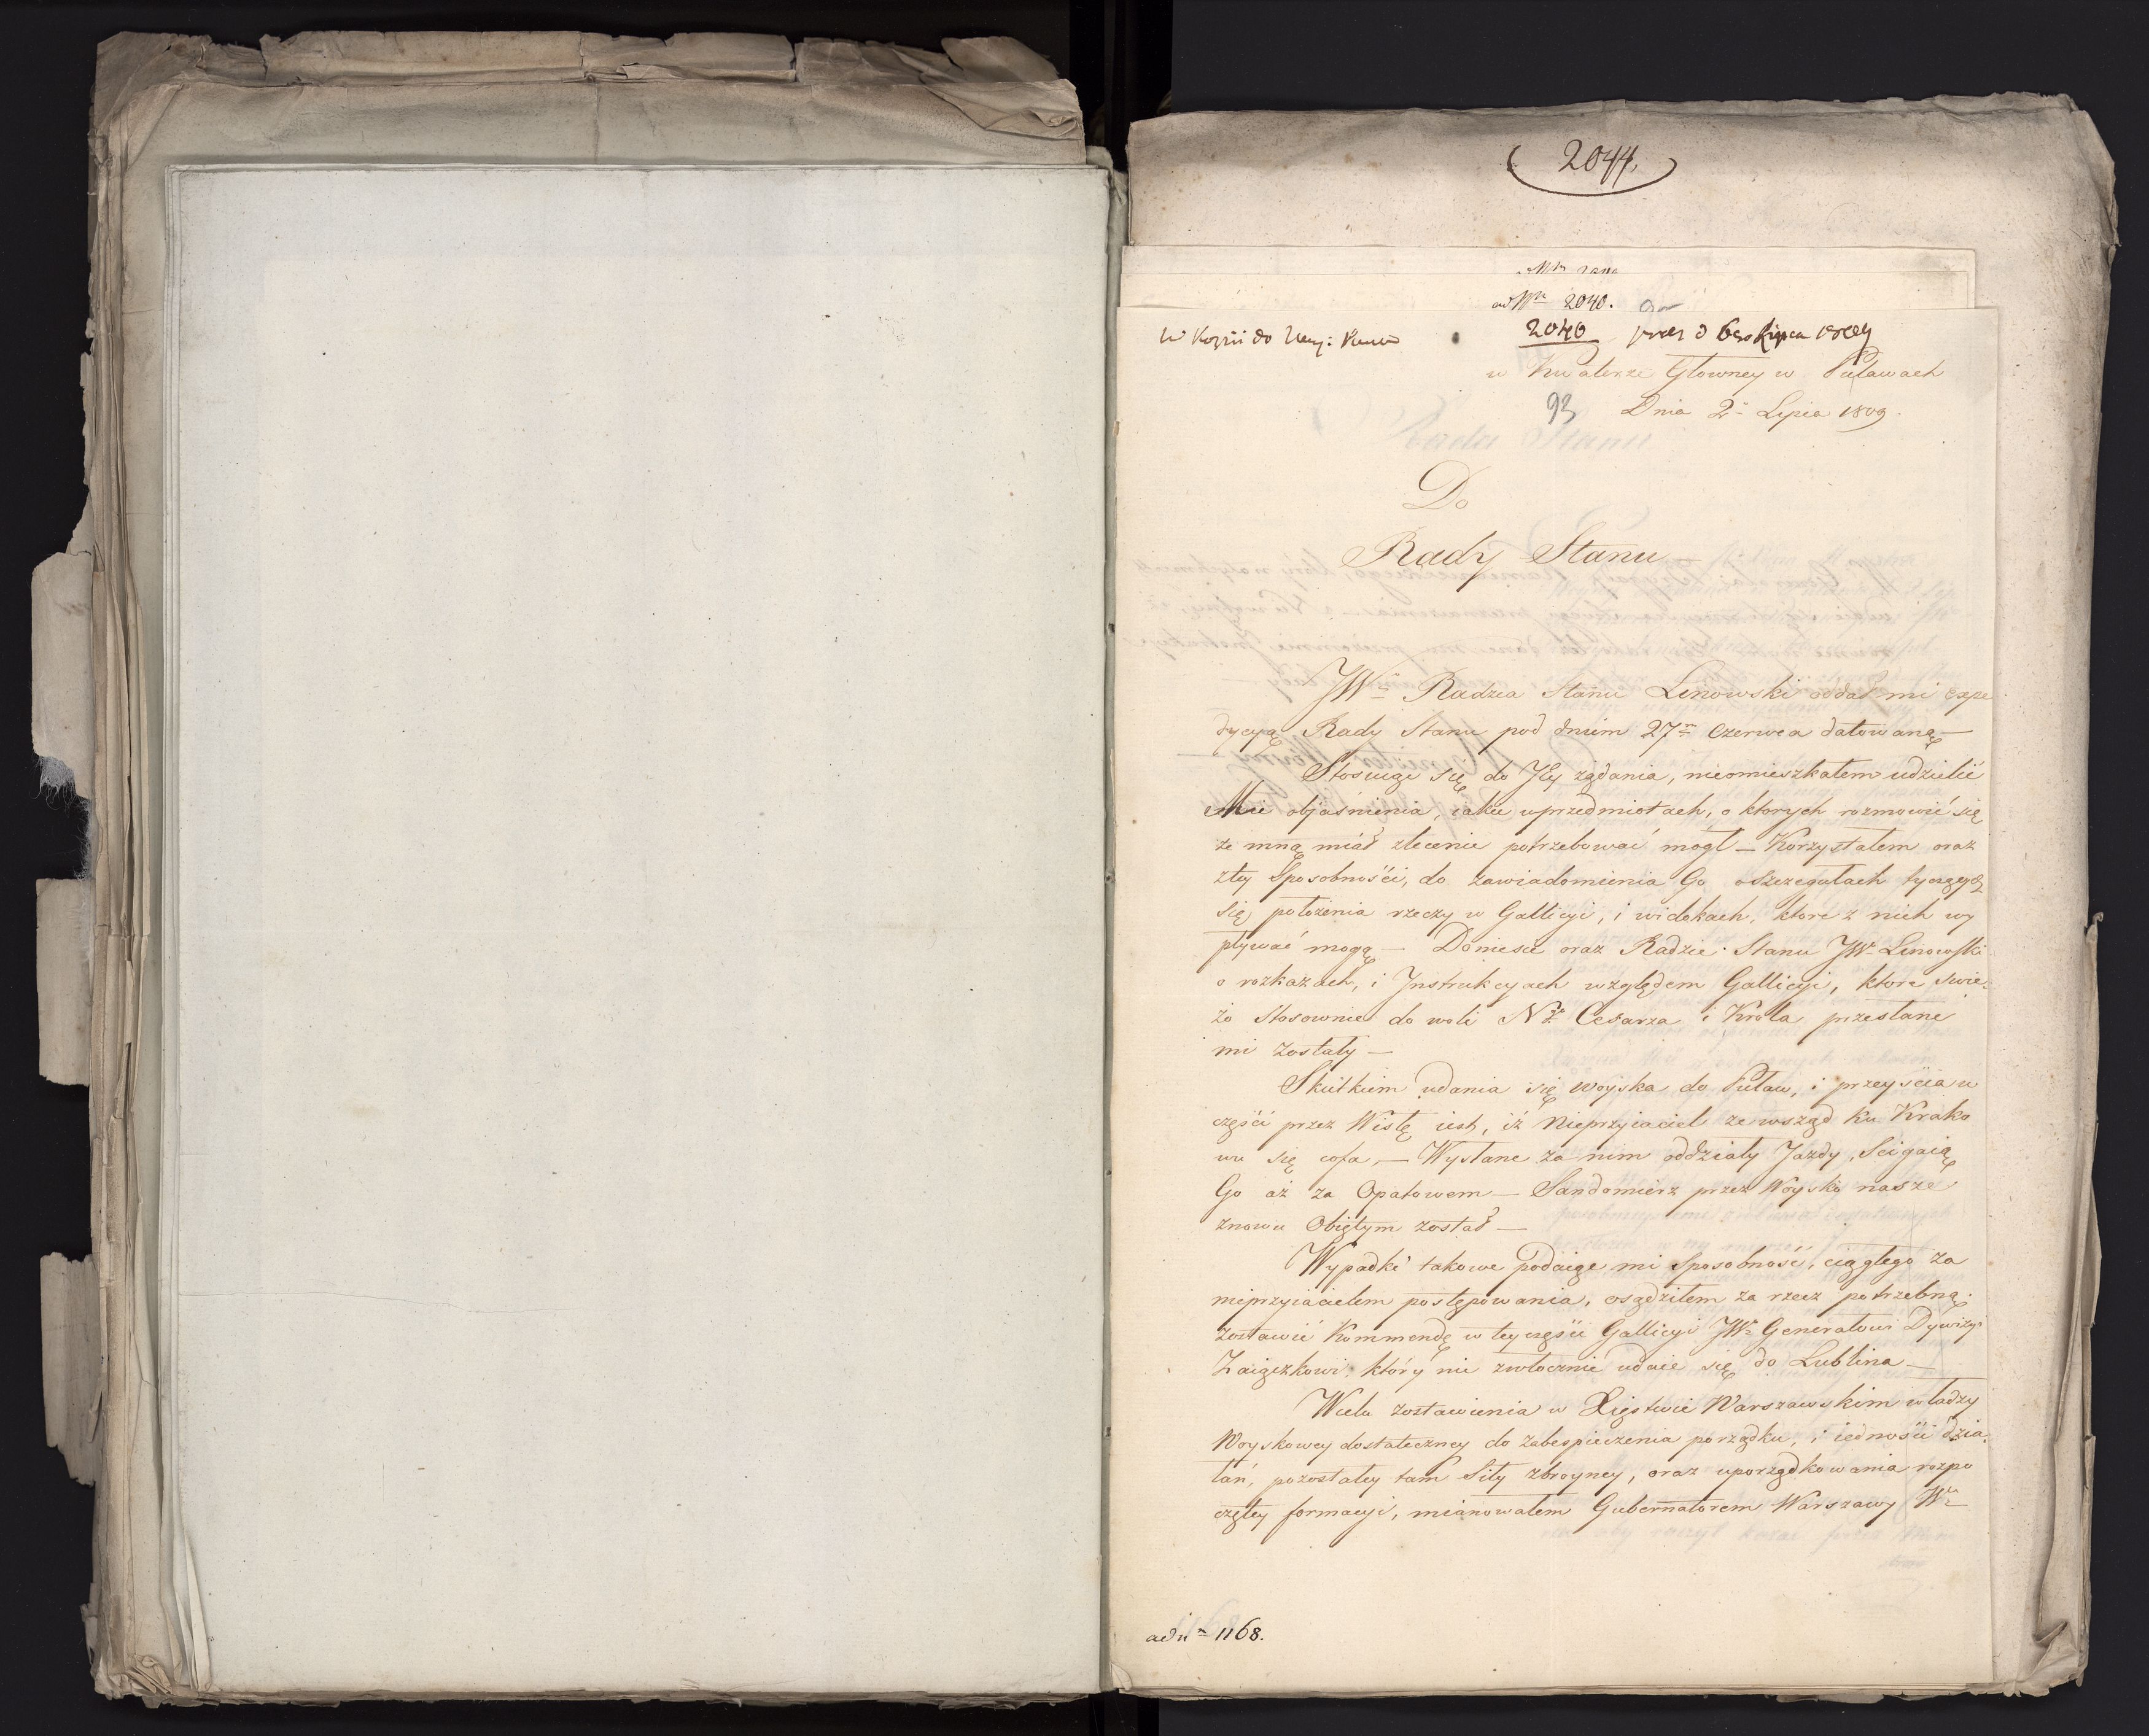 2044.
ad Nr 2040.
2040 6go Lipca 1809
w Kwaterze Głowney w Puławach
93 Dnia 2o Lipca 1809.
Do
Rady Stanu —
JWny Radzca Stanu Linowski oddał mi expe
dycyą Rady Stanu pod dniem 27m Czerwca datowaną —
Stosuiąc się do Jey żądania, nieomieszkałem udzielić
Mu objaśnienia, iakie w przedmiotach, o ktorych rozmowić się
ze mną miał zlecenie potrzebować mogł — Korzystałem oraz
z tey Sposobności, do zawiadomienia Go o szczegułach tyczących
się położenia rzeczy w Gallicyi, i widokach, ktore z nich wy
pływać mogą — Doniesie oraz Radzie Stanu JW. Linowski
o rozkazach, i Jnstrukcyach względem Gallicyi, ktore swie-
żo Stosownie do woli Nº Cesarza i Krola przesłane
mi zostały —
Skutkiem udania się woyska do Puław, i przeyścia w
części przez Wisłę iest, iż Nieprzyiaciel ze wsząd ku Krako
wu się cofa, — Wysłane za nim oddziały Jazdy, Scigaią
Go aż za Opatowem — Sandomierz przez Woysko nasze
znowu Obiętym został —
Wypadki takowe podaiąc mi sposobność, ciągłego za
nieprzyiacielem postępowania, osądziłem za rzecz potrzebną
zostawić Kommendę w tey części Gallicyi JW. Generałowi Dywizyi
Zaiączkowi, który nie zwłocznie udaie się do Lublina —
W celu zostawienia w Xięstwie Warszawskim władzy
Woyskowey dostateczney do zabespieczenia porządku, i iedności dzia-
łań, pozostałey tam Siły zbroyney, oraz uporządkowania rozpo
czętey formacyi, mianowałem Gubernatorem Warszawy Wo
ad nr 1168.